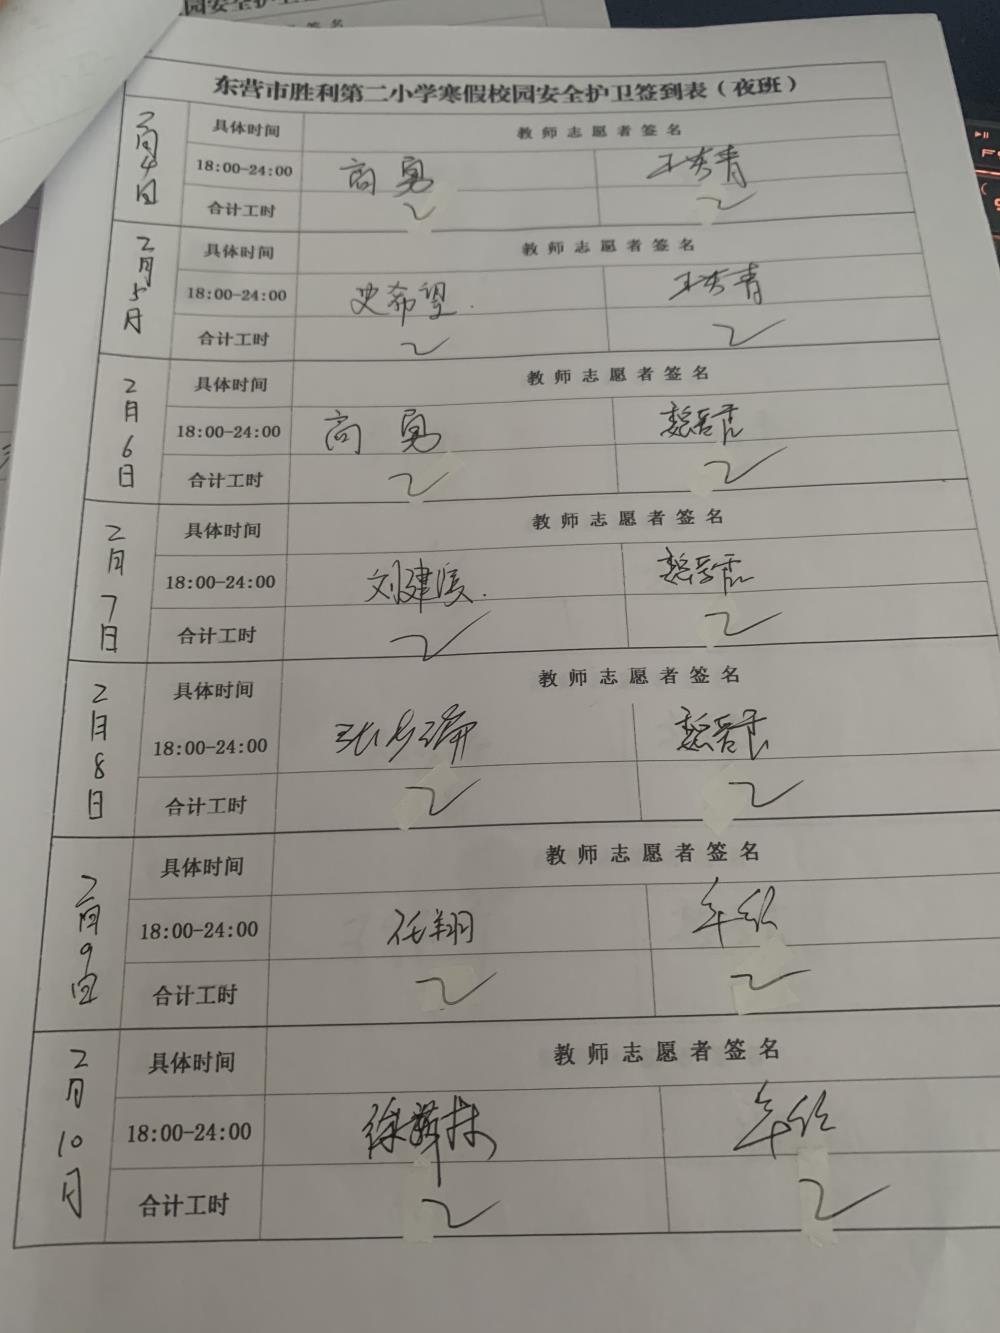 东营市胜利第二小学寒假校园安全护卫签到表（夜班）
2月4日
具体时间 教师志愿者签名
18:00-24:00 高勇 王秀青
合计工时 2 2
2月5日
具体时间 教师志愿者签名
18:00-24:00 史希望. 王秀青
合计工时 2 2
2月6日
具体时间 教师志愿者签名
18:00-24:00 高勇
合计工时 2 2
2月7日
具体时间 教师志愿者签名
18:00-24:00
合计工时 2 2
2月8日
具体时间 教师志愿者签名
18:00-24:00
合计工时 2 2
2月9日
具体时间 教师志愿者签名
18:00-24:00 任翔
合计工时 2 2
2月10日
具体时间 教师志愿者签名
18:00-24:00
合计工时 2 2